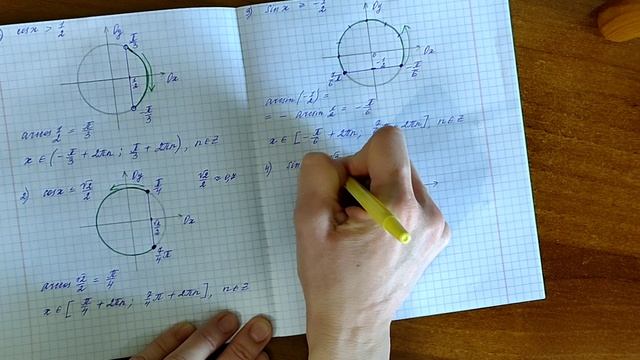 ) cosx > 1/2
Oy
π/3
Ox
1/2
-π/3
arccos 1/2 = π/3
x ∈ (-π/3 + 2πn; π/3 + 2πn), n∈Z
2) cosx ≤ √2/2
√2/2 ≈ 0,7
Oy
π/4
Ox
√2/2
7/4 π
arccos √2/2 = π/4
x ∈ [π/4 + 2πn; 7/4 π + 2πn], n∈Z
3) sinx ≥ -1/2
Oy
Ox
0
7/6 π
-1/2
-π/6
arcsin(-1/2) =
= - arcsin 1/2 = -π/6
x ∈ [-π/6 + 2πn; 7/6 + 2πn], n∈Z
4) sin